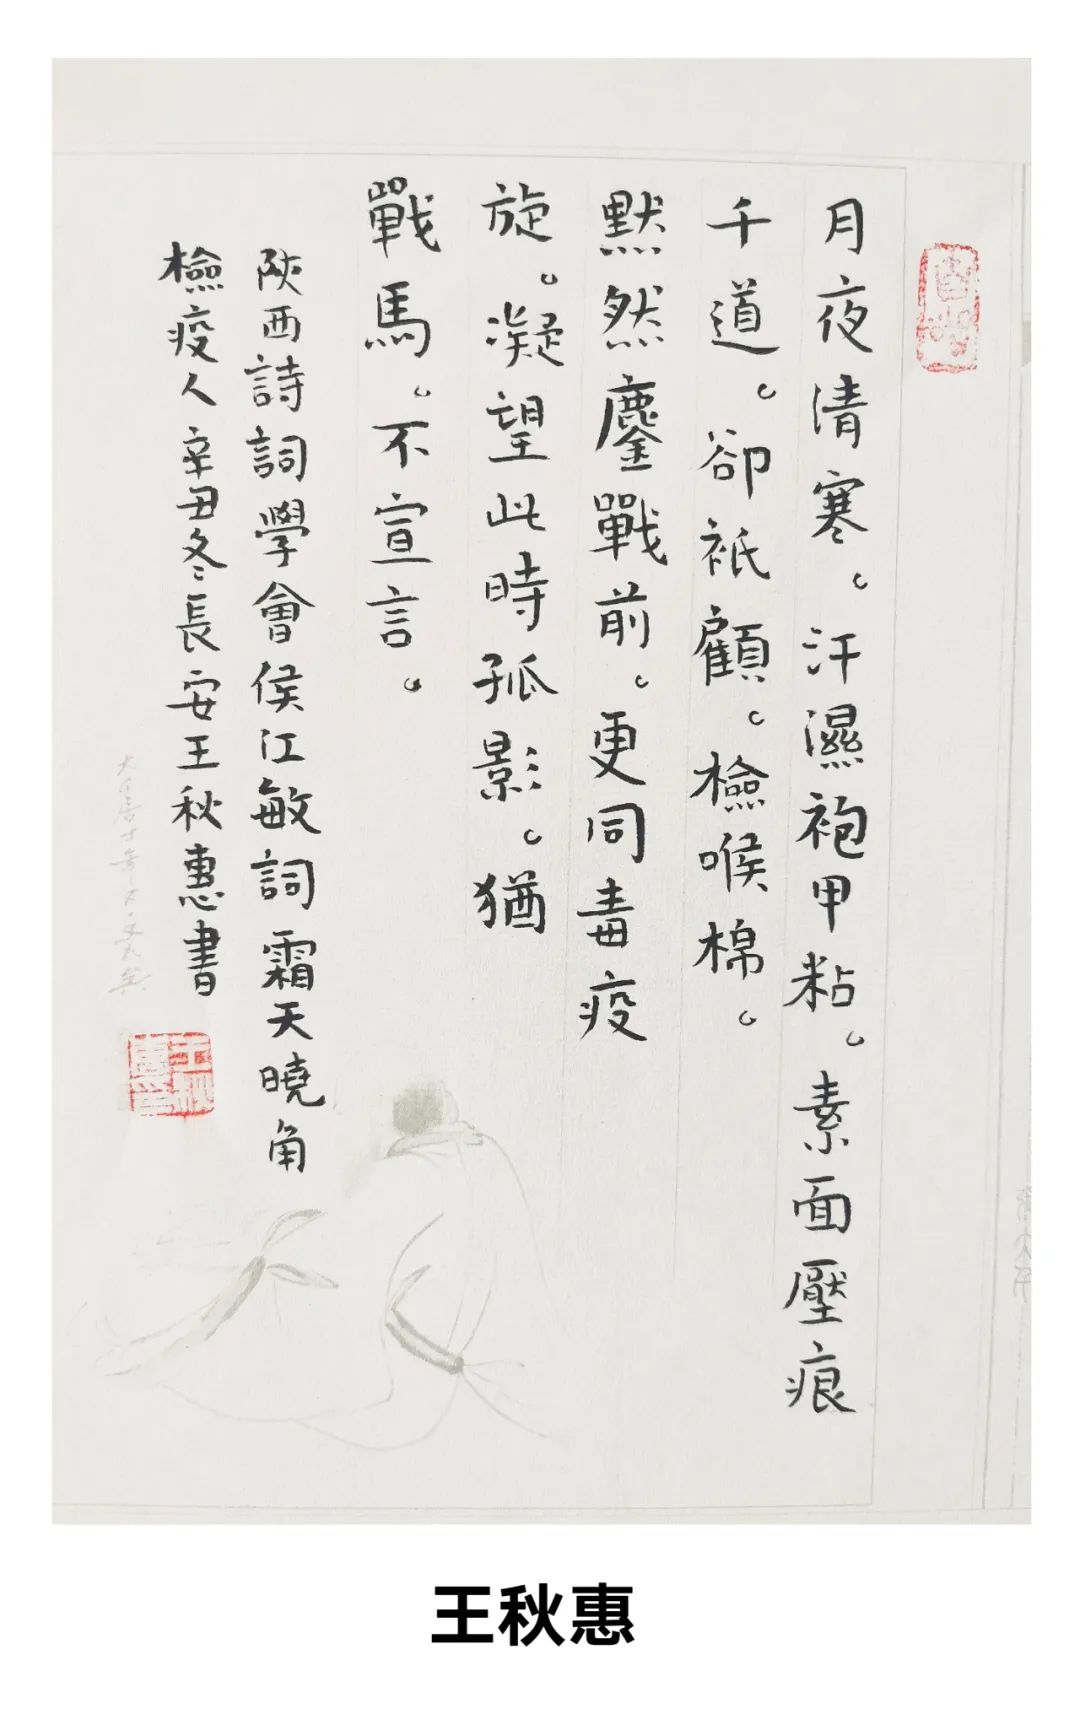 月夜清寒。汗濕袍甲粘。素面壓痕
千道。卻祇顧。檢喉棉。
默然鏖戰前。更同毒疫
旋。凝望此時孤影。猶
戰馬。不宣言。
陝西詩詞學會侯江敏詞霜天曉角
檢疫人辛丑冬長安王秋惠書
王秋惠
王秋惠